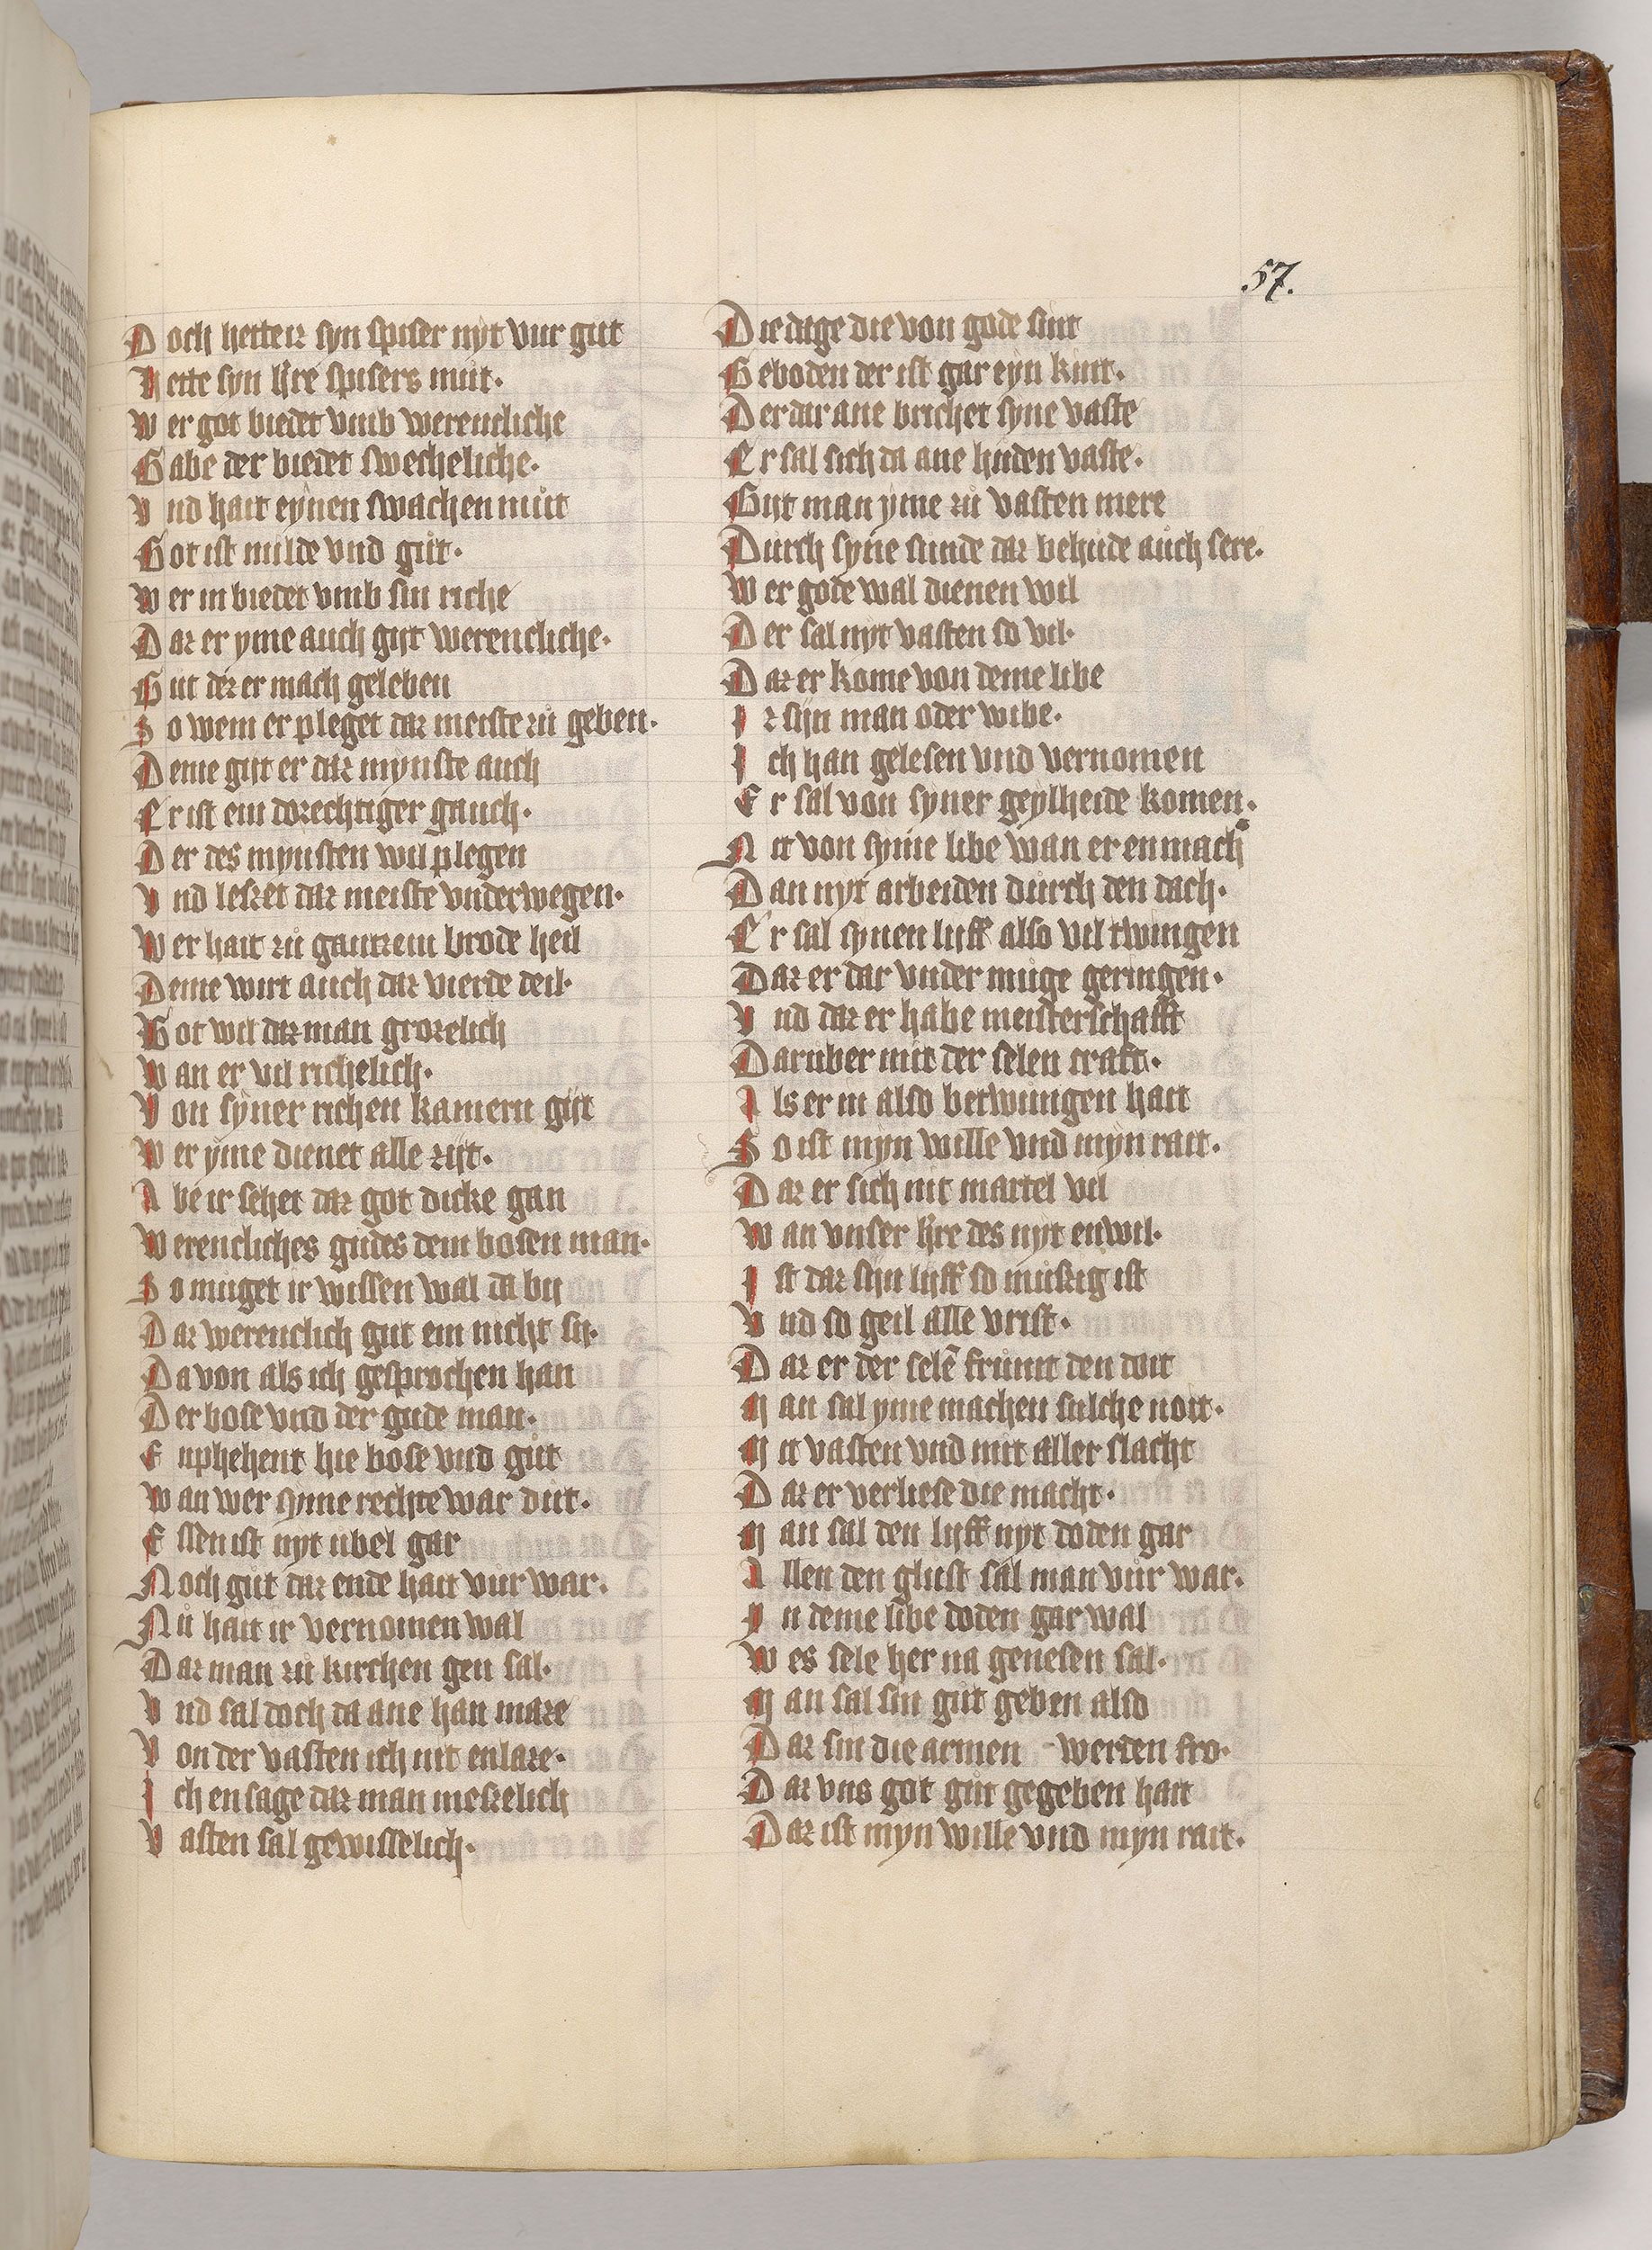 57.
Doch hettez syn spiser nyt vur gut
Hette syn h're spisers mut.
Wer got biedet vmb werentliche
Gabe der biedet swecheliche.
Vnd hait eynen swachen můt
Got ist milde vnd gůt.
Wer in biedet vmb sin riche
Daz er yme auch gijt werentliche.
Gut dez er mach geleben
So wem er pleget daz meiste zů geben.
Deme gijt er daz mynste auch
Er ist ein dorechtiger gauch.
Der des mynsten wil plegen
Vnd leszet daz meiste vnderwegen.
Wer hait zů gantzem brode heil
Deme wirt auch daz vierde deil.
Got wil daz man grozelich
Wan er vil richelich.
Von syner richen kamern gijt
Wer yme dienet alle zijt.
Abe ir sehet daz got dicke gan
Werentliches gůdes dem bosen man.
So můget ir wissen wal da bij
Daz werentlich gut ein nicht sij.
Da von als ich gesprochen han
Der bose vnd der gude man.
Enphehent hie bose vnd gůt
Wan wer ynne rechte war dut.
Essen ist nyt ubel gar
Noch gůt daz ende hait vůr war.
Nů hait ir vernomen wal
Daz man zů kirchen gen sal.
Vnd sal doch da ane han maze
Von der vasten ich nit enlaze.
Ich en sage daz man meszelich
Vasten sal gewisselich.
Die dage die von gode sint
Geboden der ist gar eyn kint.
Der dar ane brichet syne vaste
Er sal sich da ane hůden vaste.
Gijt man yme zů vasten mere
Durch syne sunde daz behude aůch sere.
Wer gode wal dienen wil
Der sal nyt vasten so vil.
Daz er kome von deme libe
Iz sijn man oder wibe.
Ich han gelesen vnd vernomen
Er sal von syner geylheide komen.
Nit von syme libe wan er enmach
Dan nyt arbeiden důrch den dach.
Er sal synen lijff also vil twingen
Daz er dar vnder můge geringen.
Vnd daz er habe meisterschafft
Daruber mit der selen craft.
Als er in also betwůngen hait
So ist myn wille vnd myn rait.
Daz er sich nit martel vil
Wan vnser h're des nyt enwil.
Ist daz sijn lijff so můszig ist
Vnd so geil alle vrist.
Daz er der selē frůmt den doit
Man sal yme machen sulche noit.
Mit vasten vnd mit aller slacht
Daz er verliese die macht.
Man sal den lijff nyt doden gar
Allen den glust sal man vůr war.
In deme libe doden gar wal
Wes sele her na genesen sal.
Man sal sin gůt geben also
Daz sin die armen - werden fro.
Daz vns got gůt gegeben hait
Daz ist myn wille vnd myn rait.